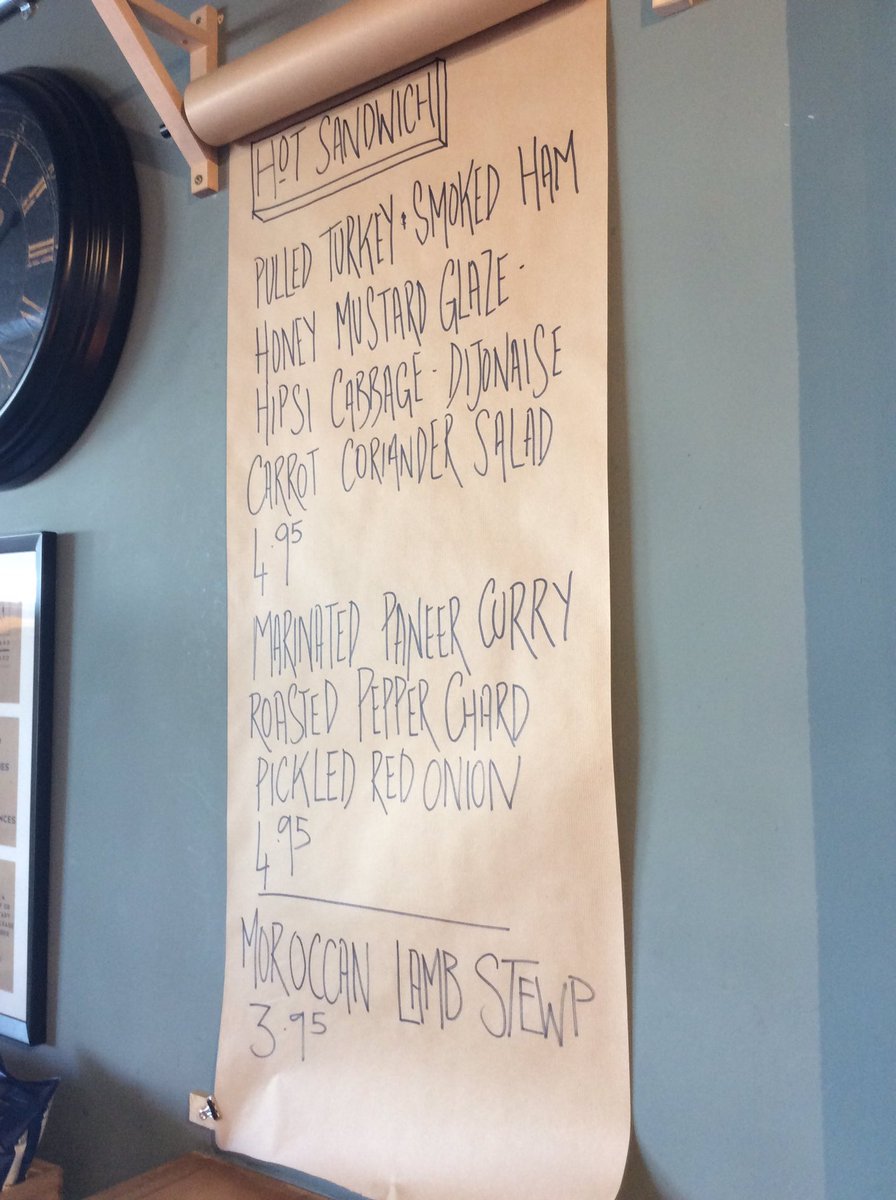 HOT SANDWICH
PULLED TURKEY & SMOKED HAM
HONEY MUSTARD GLAZE ·
HIPSI CABBAGE · DIJONAISE
CARROT CORIANDER SALAD
4.95
MARINATED PANEER CURRY
ROASTED PEPPER CHARD
PICKLED RED ONION
4.95
MOROCCAN LAMB STEWP
3.95